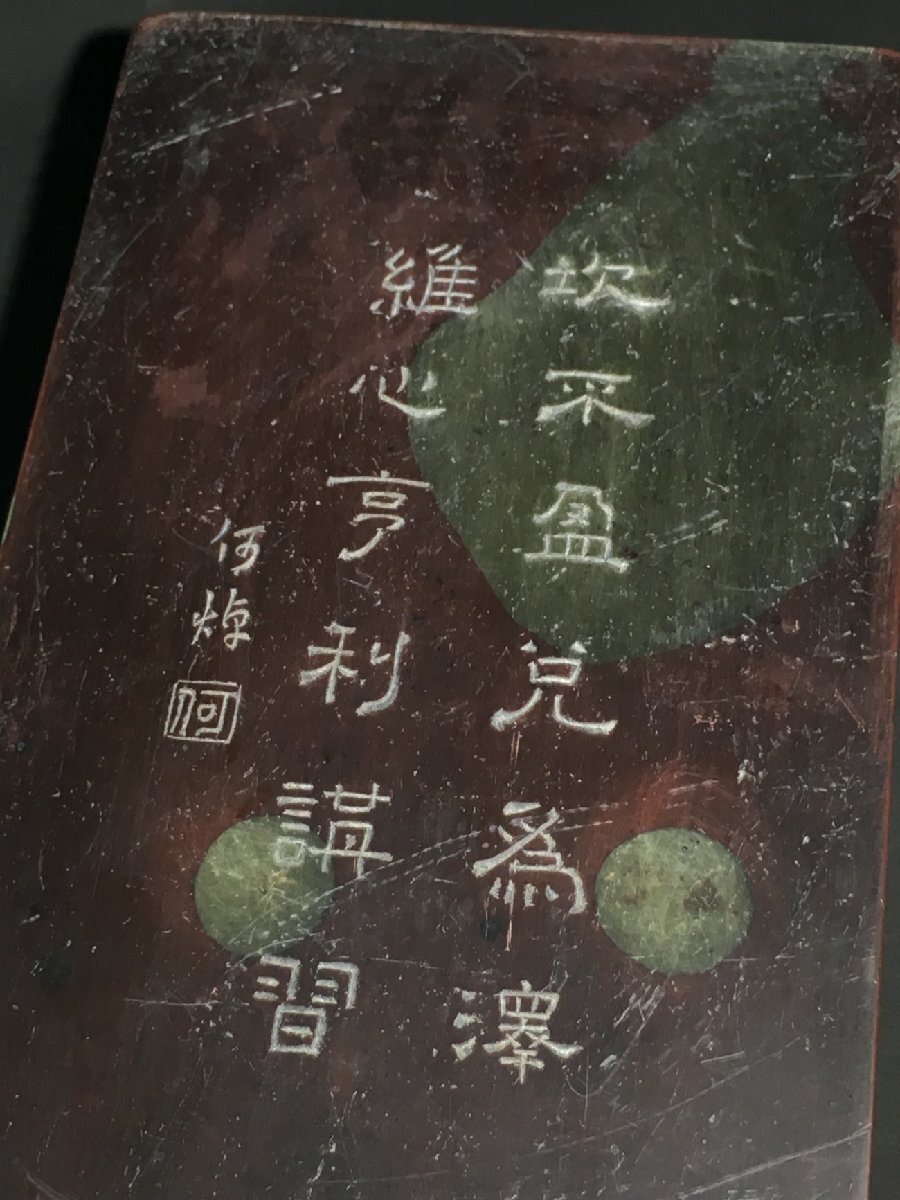 坎不盈兌爲澤
維心亨利講習
何焯
何